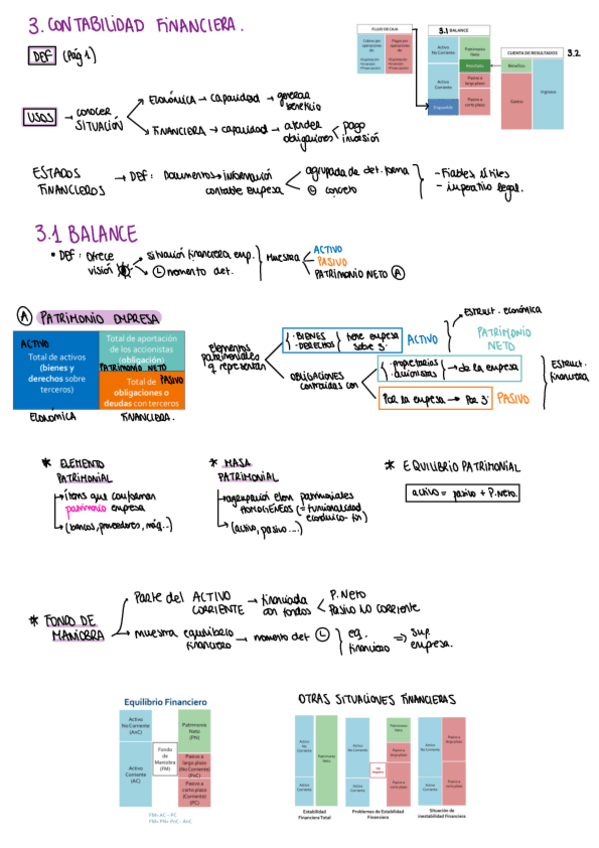 3. CONTABILIDAD FINANCIERA.
DEF (Pág 1)
FLUJO DE CAJA
3.1 BALANCE
CUENTA DE RESULTADOS 3.2
Cobros por operaciones de:
Pagos por operaciones de:
Activo No Corriente
Patrimonio Neto
Resultado
Beneficio
Activo Corriente
Pasivo a largo plazo
Pasivo a corto plazo
Disponible
Gastos
Ingresos
USOS → CONOCER SITUACIÓN
ECONÓMICA → capacidad → generar beneficio
FINANCIERA → capacidad → atender obligaciones pago inversión
ESTADOS FINANCIEROS → DEF: Documentos → información contable empresa
agrupada de det. forma
concreto
- Fiables, útiles
- imperativo legal.
3.1 BALANCE
• DEF: Ofrece visión
situación financiera emp.
momento det.
muestra
ACTIVO
PASIVO
PATRIMONIO NETO (A)
(A) PATRIMONIO EMPRESA
ACTIVO
Total de activos (bienes y derechos sobre terceros)
Total de aportación de los accionistas (obligación)
PATRIMONIO NETO
Total de obligaciones o deudas con terceros
PASIVO
ECONOMICA
FINANCIERA.
Elementos patrimoniales q representan
· BIENES
· DERECHOS
tiene empresa sobre 3º
ACTIVO
Estruct. económica
OBLIGACIONES contraidas con
· propietarios
· accionistas
→ de la empresa
PATRIMONIO NETO
Por la empresa → Por 3º
PASIVO
Estruct. financiera
* ELEMENTO PATRIMONIAL
→ ítems que conforman patrimonio empresa
→ (bancos, proveedores, máq...)
* MASA PATRIMONIAL
→ agrupación elem patrimoniales HOMOGÉNEOS (= funcionalidad, económico-fin)
→ (activo, pasivo....)
* EQUILIBRIO PATRIMONIAL
activo = pasivo + P. Neto.
* FONDO DE MANIOBRA
Parte del ACTIVO CORRIENTE → financiada con fondos
P. Neto
Pasivo NO corriente
→ muestra equilibrio financiero → momento det
eq. financiero => Sup. empresa.
Equilibrio Financiero
Activo No Corriente (AnC)
Patrimonio Neto (PN)
Fondo de Maniobra (FM)
Pasivo a largo plazo (No Corriente) (PnC)
Activo Corriente (AC)
Pasivo a corto plazo (Corriente) (PC)
FM= AC – PC
FM= PN+ PnC - AnC
OTRAS SITUACIONES FINANCIERAS
Activo No Corriente
Patrimonio Neto
Activo Corriente
Estabilidad Financiera Total
Activo No Corriente
Patrimonio Neto
Pasivo a largo plazo
Activo Corriente
Pasivo a corto plazo
Problemas de Estabilidad Financiera
Activo No Corriente
Pasivo a largo plazo
Activo Corriente
Pasivo a corto plazo
Situación de inestabilidad Financiera